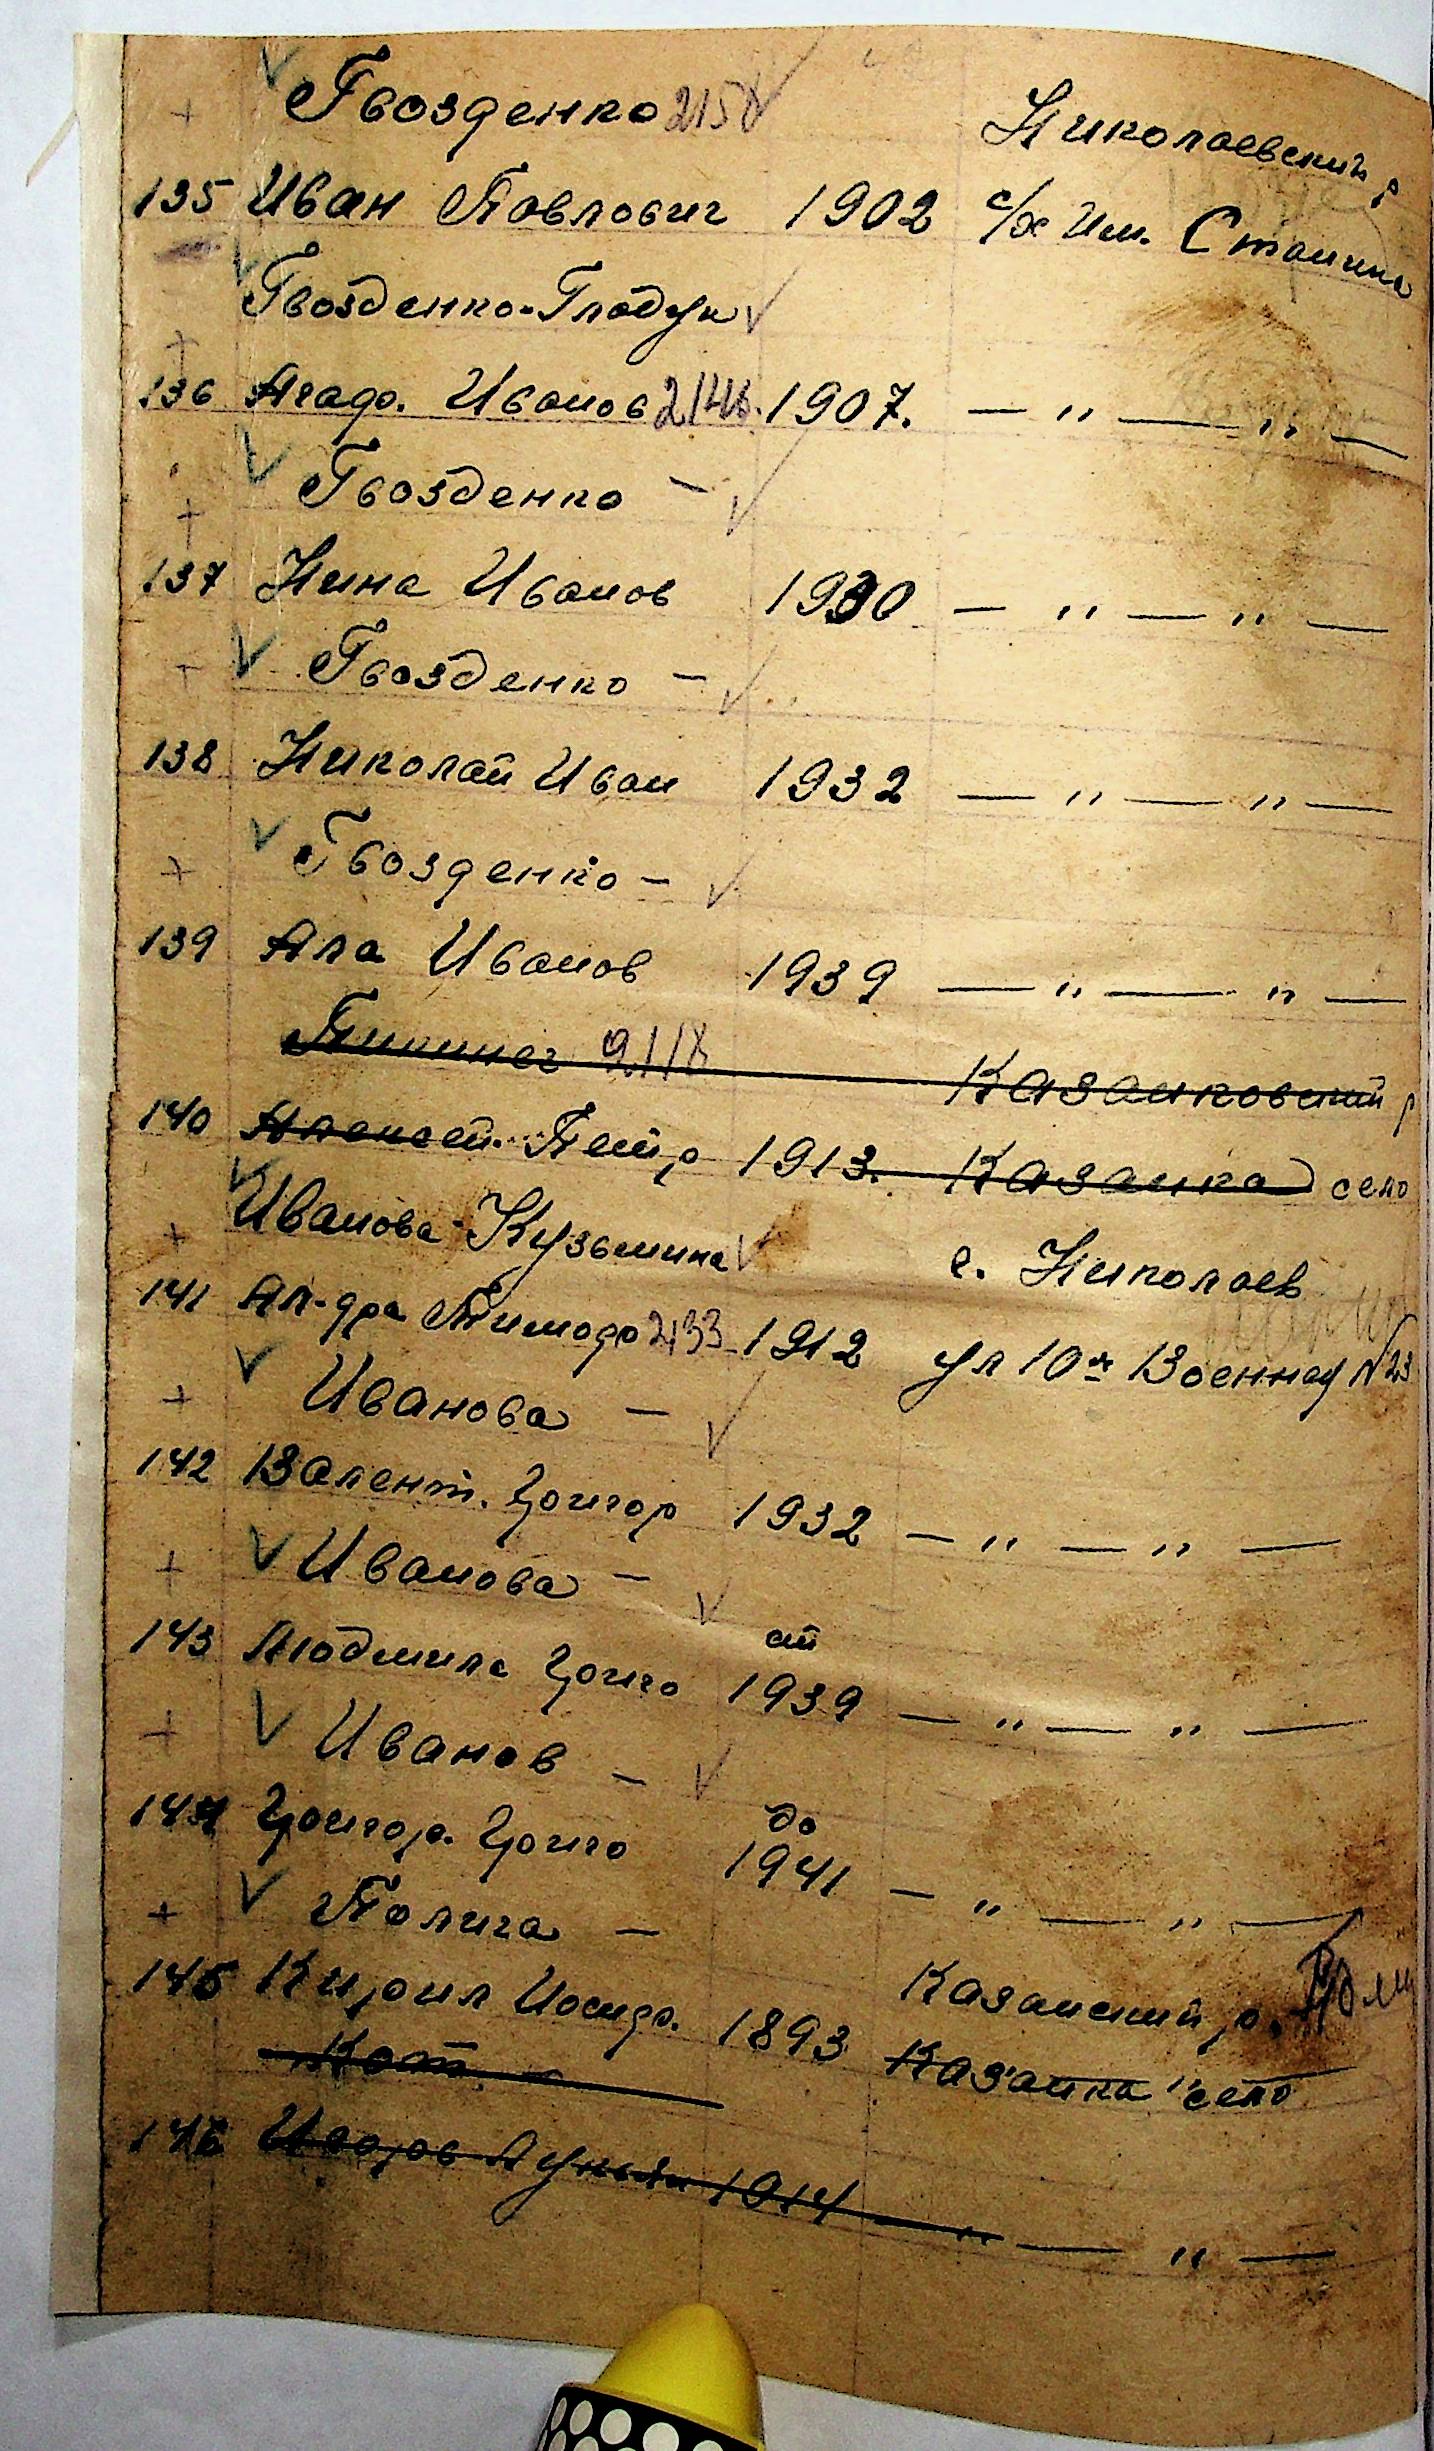 Гвозденко 2158 Николаевский р
135 Иван Павлович 1902 с/х Им. Сталина
Гвозденко-Гладун
136 Агаф. Иванов 2146. 1907. — " — " —
Гвозденко —
137 Нина Иванов 1930 — " — " —
Гвозденко —
138 Николай Иван 1932 — " — " —
Гвозденко —
139 Ала Иванов 1939 — " — " —
2118 Казанковский р
140 Алексей Петр 1913. Казанка село
Иванова-Кузьмина г. Николаев
141 Ал-дра Тимофе 2133 1912 ул 10я Военная №23
Иванова —
142 Валент. Григор 1932 — " — " —
Иванова —
ай
143 Людмила Григо 1939 — " — " —
Иванов —
до
144 Григор. Григо 1941 — " — " —
Палига —
145 Кирил Иосиф. 1893 Казанский р.
Казанка село
Кот
146 1914 — " — " —